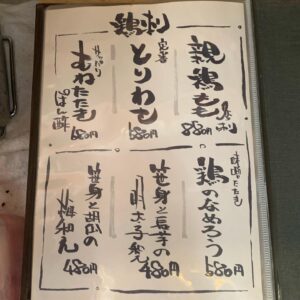 鶏刺
親鶏もも刺
880円
定番
とりわさ
680円
さっぱり
むねたたき
ぽん酢
680円
味噌たたき
鶏のなめろう
680円
笹身と長芋の
明太子和え
480円
笹身と胡瓜の
梅和え
480円